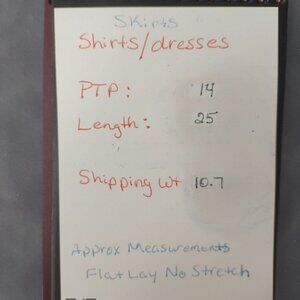 Skirts
Shirts/dresses
PTP: 14
Length: 25
Shipping wt 10.7
Approx Measurements
Flat Lay No Stretch